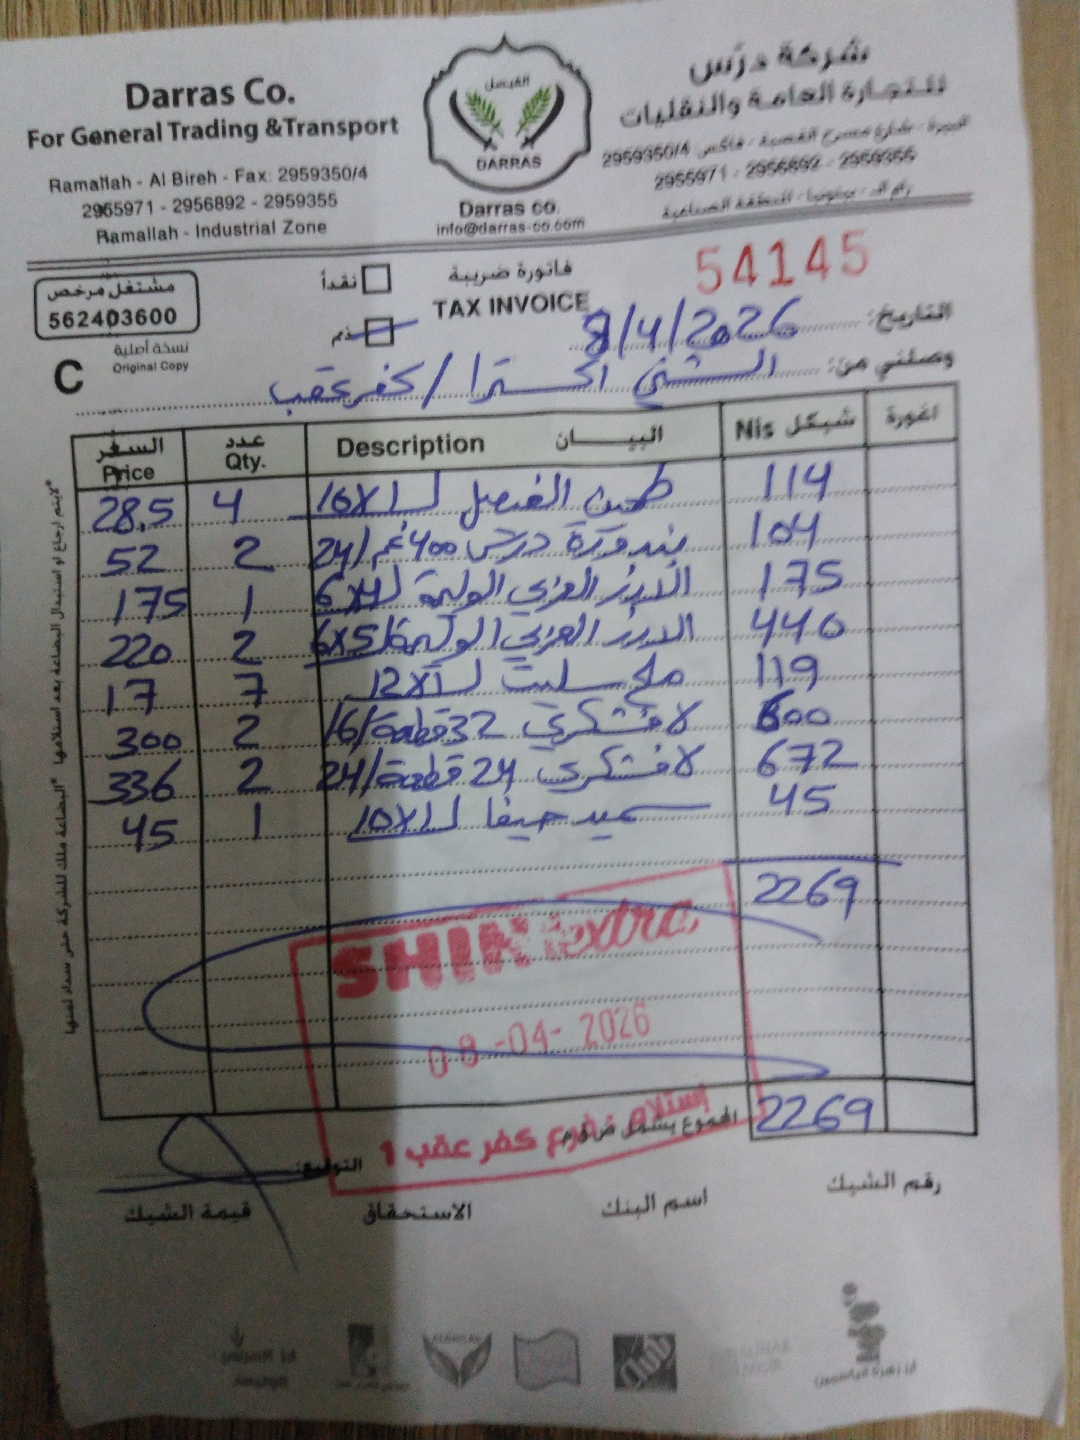 Darras Co.
For General Trading &Transport
Ramallah - Al Bireh - Fax: 2959350/4
2955971 - 2956892 - 2959355
Ramallah - Industrial Zone
الفيصل
DARRAS
Darras co.
info@darras-co.com
شركة درّس
للتجارة العامة والنقليات
البيرة - شارع مسرح القصبة - فاكس 2959350/4
2955971 - 2956892 - 2959355
رام الله - بيتونيا - المنطقة الصناعية
مشتغل مرخص
562403600
نسخة أصلية
Original Copy
C
نقداً
ذمم
فاتورة ضريبة
TAX INVOICE
54145
التاريخ: 8/4/2026
وصلني من: الشني اكسترا / كفر عقب
السعر Price عدد Qty. Description البيـــان Nis شيكل اغورة
28.5 4 طحين الفيصل 16x1 114
52 2 بندورة درس 400غم/24 104
175 1 الارز العربي الوليمة 6x4 175
220 2 الارز العربي الوليمة 6x5 440
17 7 ملح سلت 12x1 119
300 2 لافاشكري 32 قطعة/16 600
336 2 لافاشكري 24 قطعة/24 672
45 1 سميد حيفا 10x1 45
2269
SHINI extra
08-04-2026
إستلام فرع كفر عقب 1
المجموع يشمل ض.ق.م 2269
التوقيع:
رقم الشيك
اسم البنك
الاستحقاق
قيمة الشيك
*لا يتم ارجاع او استبدال البضاعة بعد استلامها *البضاعة ملك للشركة حتى سداد ثمنها